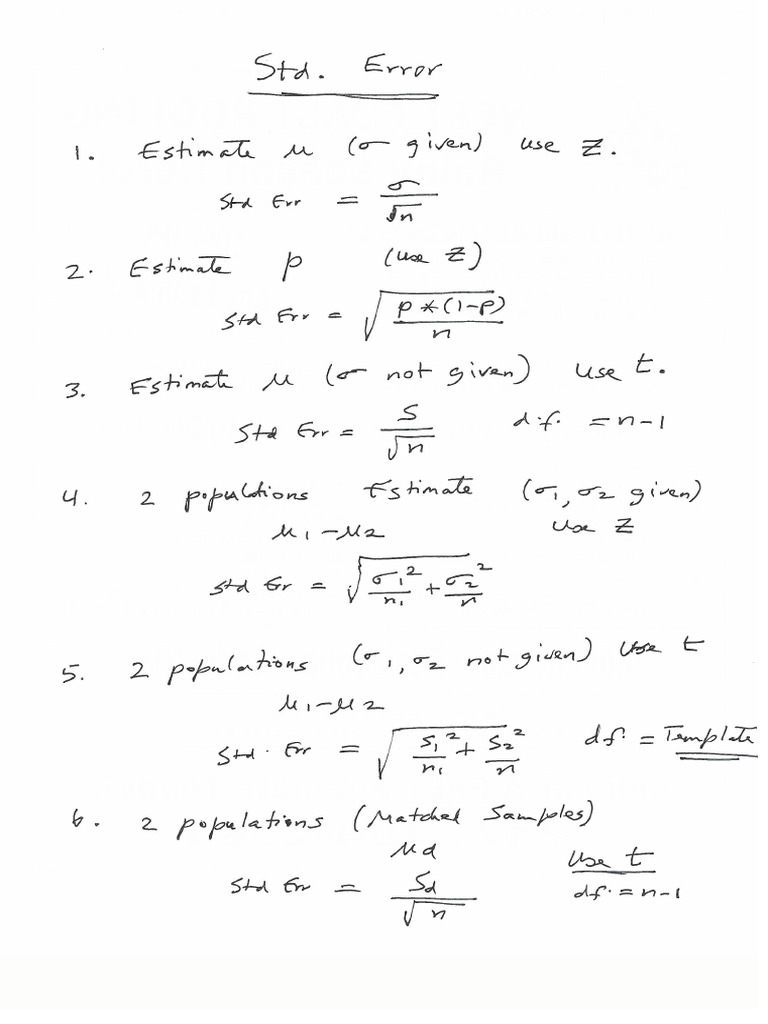 Std. Error
1. Estimate μ (σ given) use Z.
Std Err = σ/√n
2. Estimate p (use Z)
Std Err = √(p*(1-p)/n)
3. Estimate μ (σ not given) use t.
Std Err = S/√n d.f. = n-1
4. 2 populations Estimate (σ1, σ2 given)
μ1-μ2 use Z
Std Er = √(σ1²/n1 + σ2²/n)
5. 2 populations (σ1, σ2 not given) use t
μ1-μ2
Std. Err = √(S1²/n1 + S2²/n) df. = Template
6. 2 populations (Matched Samples)
μd use t
Std Err = Sd/√n df. = n-1